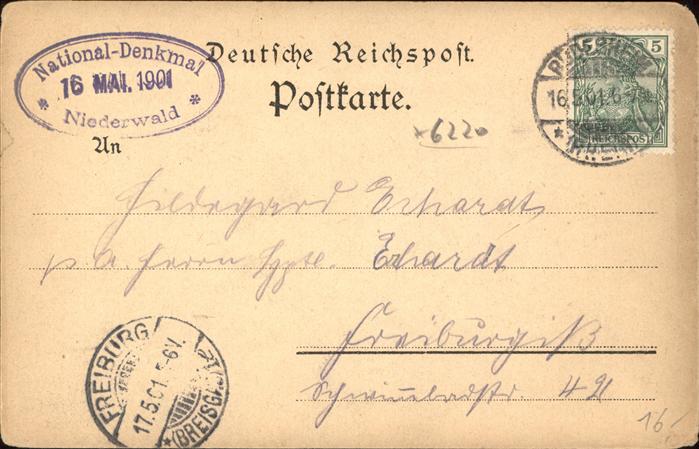 National-Denkmal
16 MAI. 1901
* Niederwald *
Deutsche Reichspost.
Postkarte.
5 5
REICHSPOST
RÜDESHEIM
16.5.01.6-7
* (RHEIN)
6220
An
Hildegard Erhardt
p a. Herrn Hptm. Erhardt
Freiburg i/B
42
FREIBURG
17.5.01.5-6V.
* (BREISGAU) 2
16.-